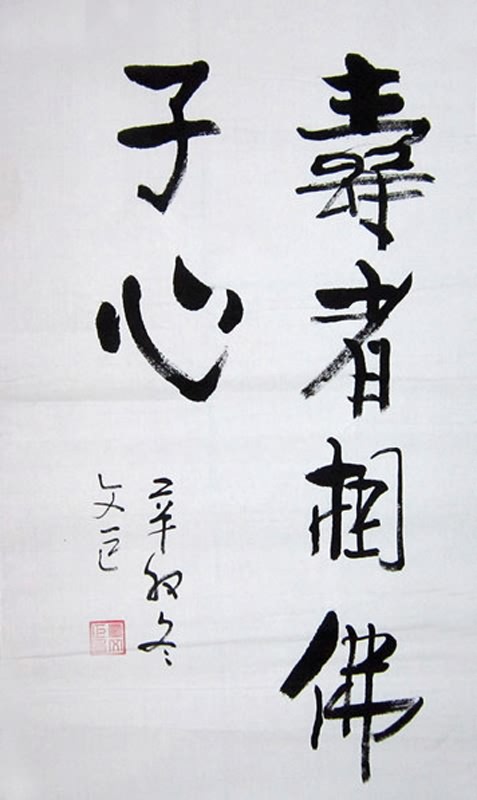 壽者相佛
子心
辛卯冬
文